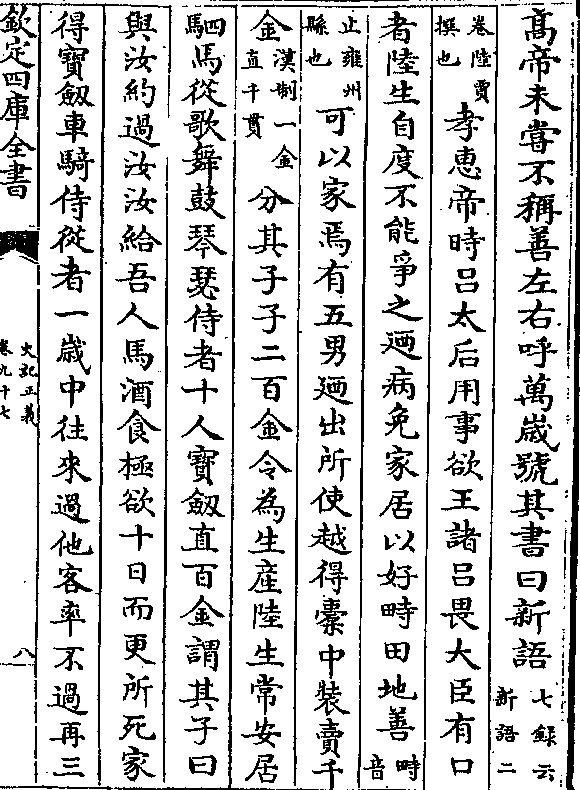 高帝未嘗不稱善左右呼萬歲號其書曰新語七錄云新語二
卷陸賈撰也孝惠帝時呂太后用事欲王諸呂畏大臣有口
者陸生自度不能爭之廼病免家居以好畤田地善畤音
止雍州縣也可以家焉有五男廼出所使越得橐中裝賣千
金漢制一金直千貫分其子子二百金令為生產陸生常安居
駟馬從歌舞鼓琴瑟侍者十人寶劒直百金謂其子曰
與汝約過汝汝給吾人馬酒食極欲十日而更所死家
得寶劒車騎侍從者一歲中往來過他客率不過再三
欽定四庫全書
史記正義
卷九十七
八